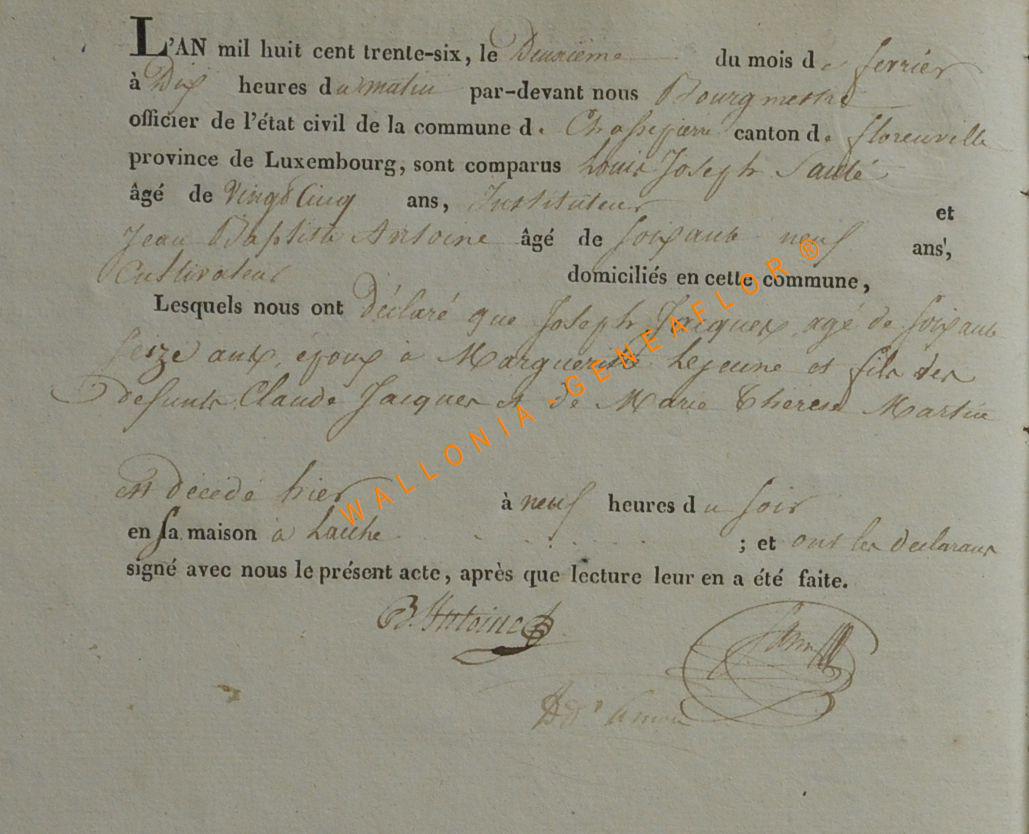 L'AN mil huit cent trente-six, le Deuxième du mois de fevrier
à Dix heures du matin par-devant nous Bourgmestre
officier de l'état civil de la commune de Chassepierre canton de florenville
province de Luxembourg, sont comparus Louis Joseph
âgé de Vingt Cinq ans, Instituteur et
Jean Baptiste Antoine âgé de soixante neuf ans,
Cultivateur domiciliés en cette commune,
Lesquels nous ont Déclaré que Joseph Jacques, agé de soixante
seize ans, époux à Marguerite Lejeune et fils des
défunts Claude Jacques et de Marie Thérèse Martin
est décédé hier à neuf heures du soir
en sa maison à Laiche ; et ont les declarans
signé avec nous le présent acte, après que lecture leur en a été faite.
B. Antoine
WALLONIA-GENEAFLOR ®